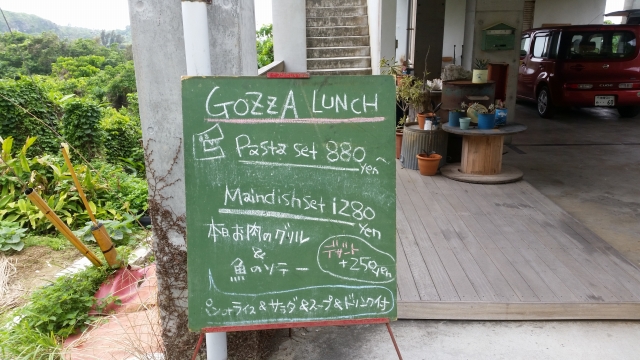 GOZZA LUNCH
Pasta set 880
yen
Maindish set 1280
yen
本日お肉のグリル
&
魚のソテー
デザート
+250yen
ライス&サラダ&スープ&ドリンク付